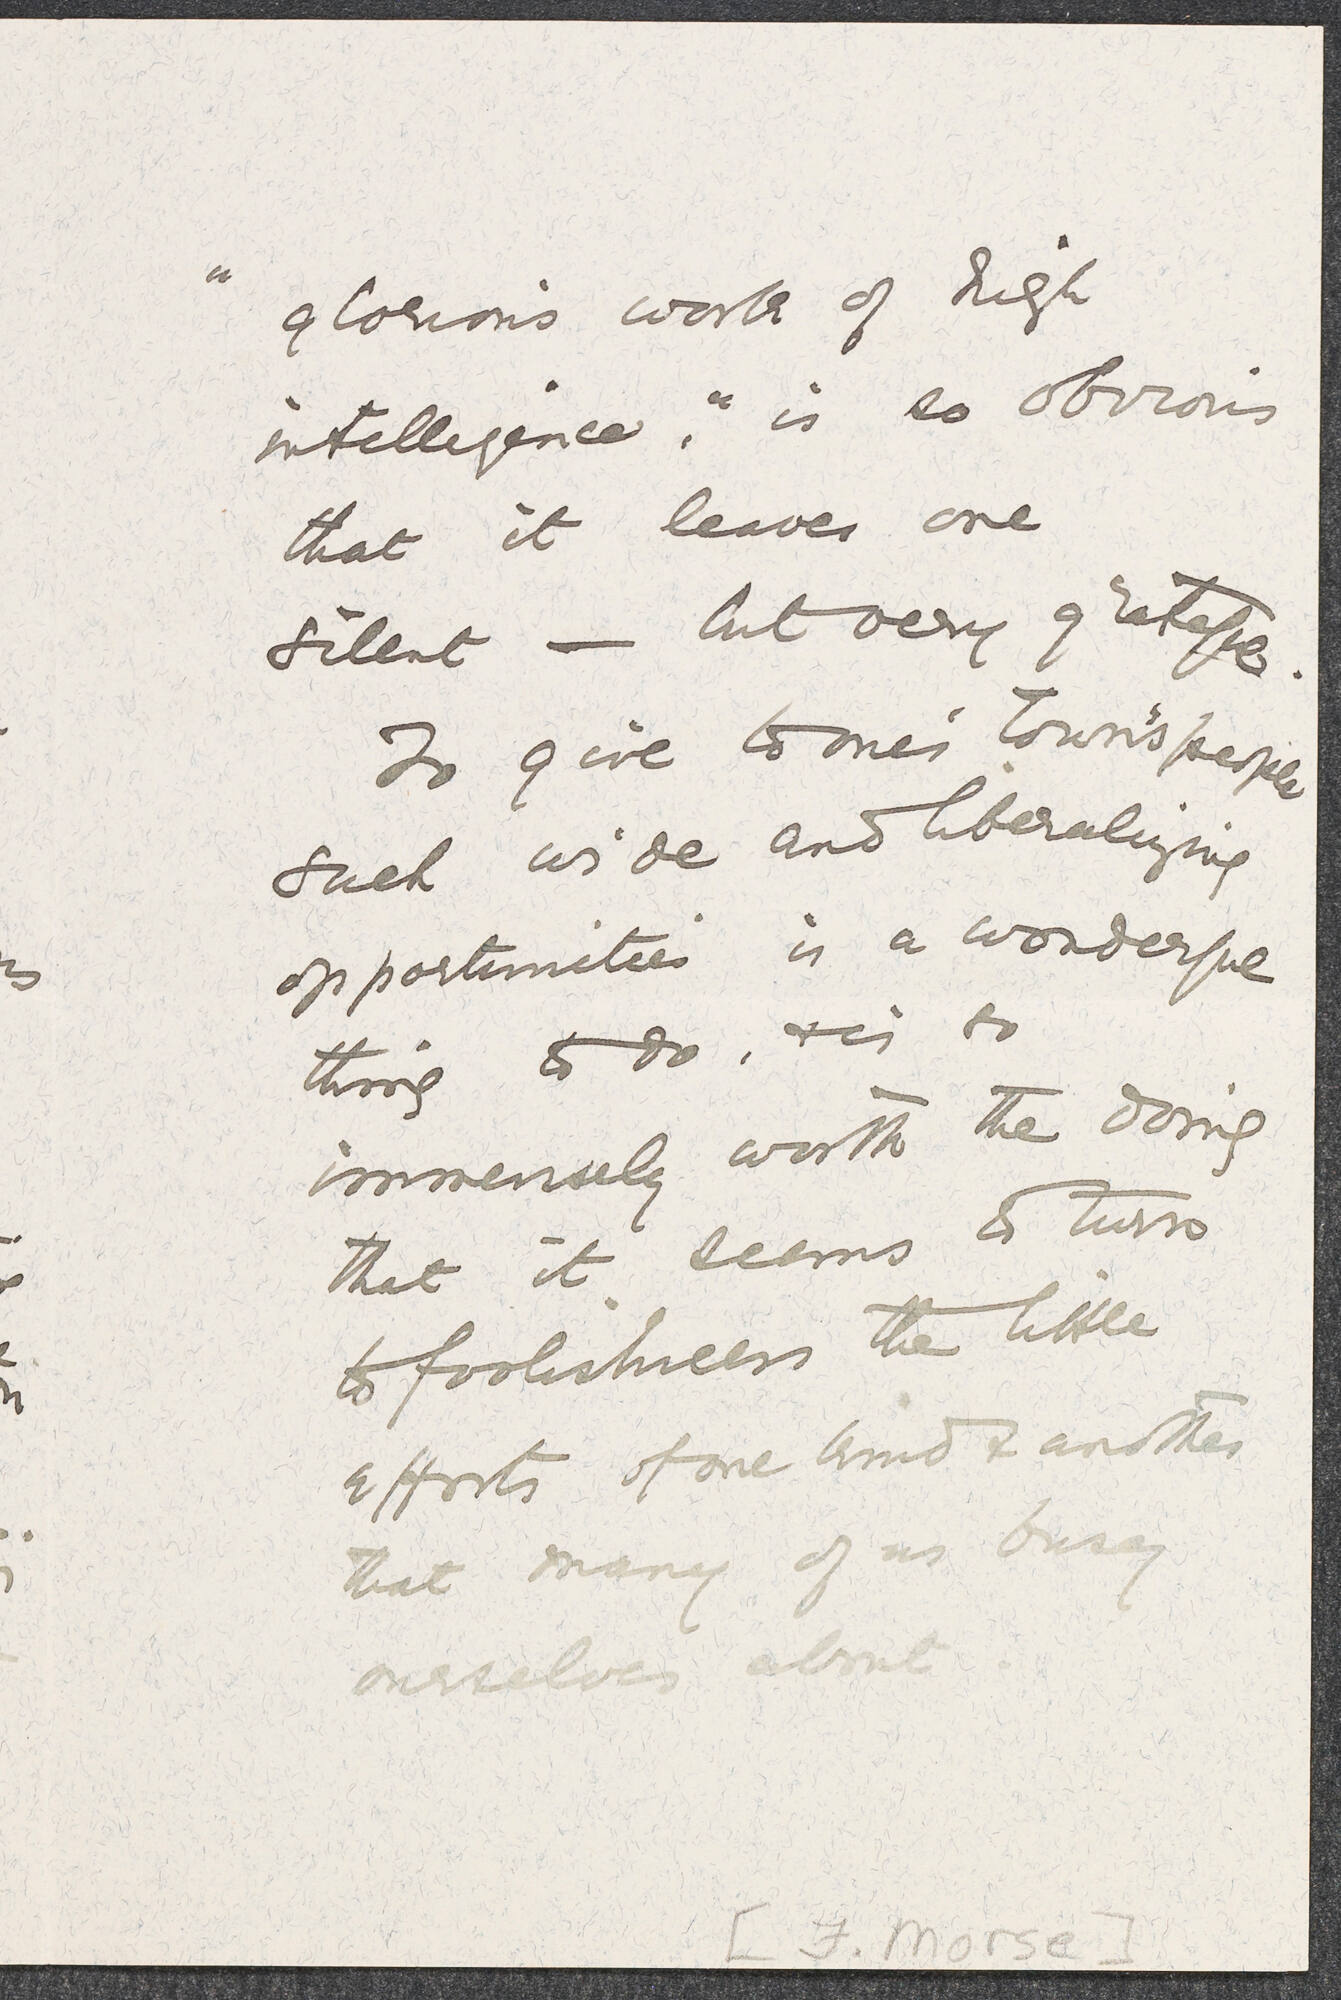 " glorious work of high
intelligence," is so obvious
that it leaves one
silent — but very grateful.
To give to one's town's people
such wide and liberalizing
opportunities is a wonderful
thing to do, + is so
immensely worth the doing
that it seems to turn
to foolishness the little
efforts of one kind & another
that many of us busy
ourselves about.
[ F. Morse ]